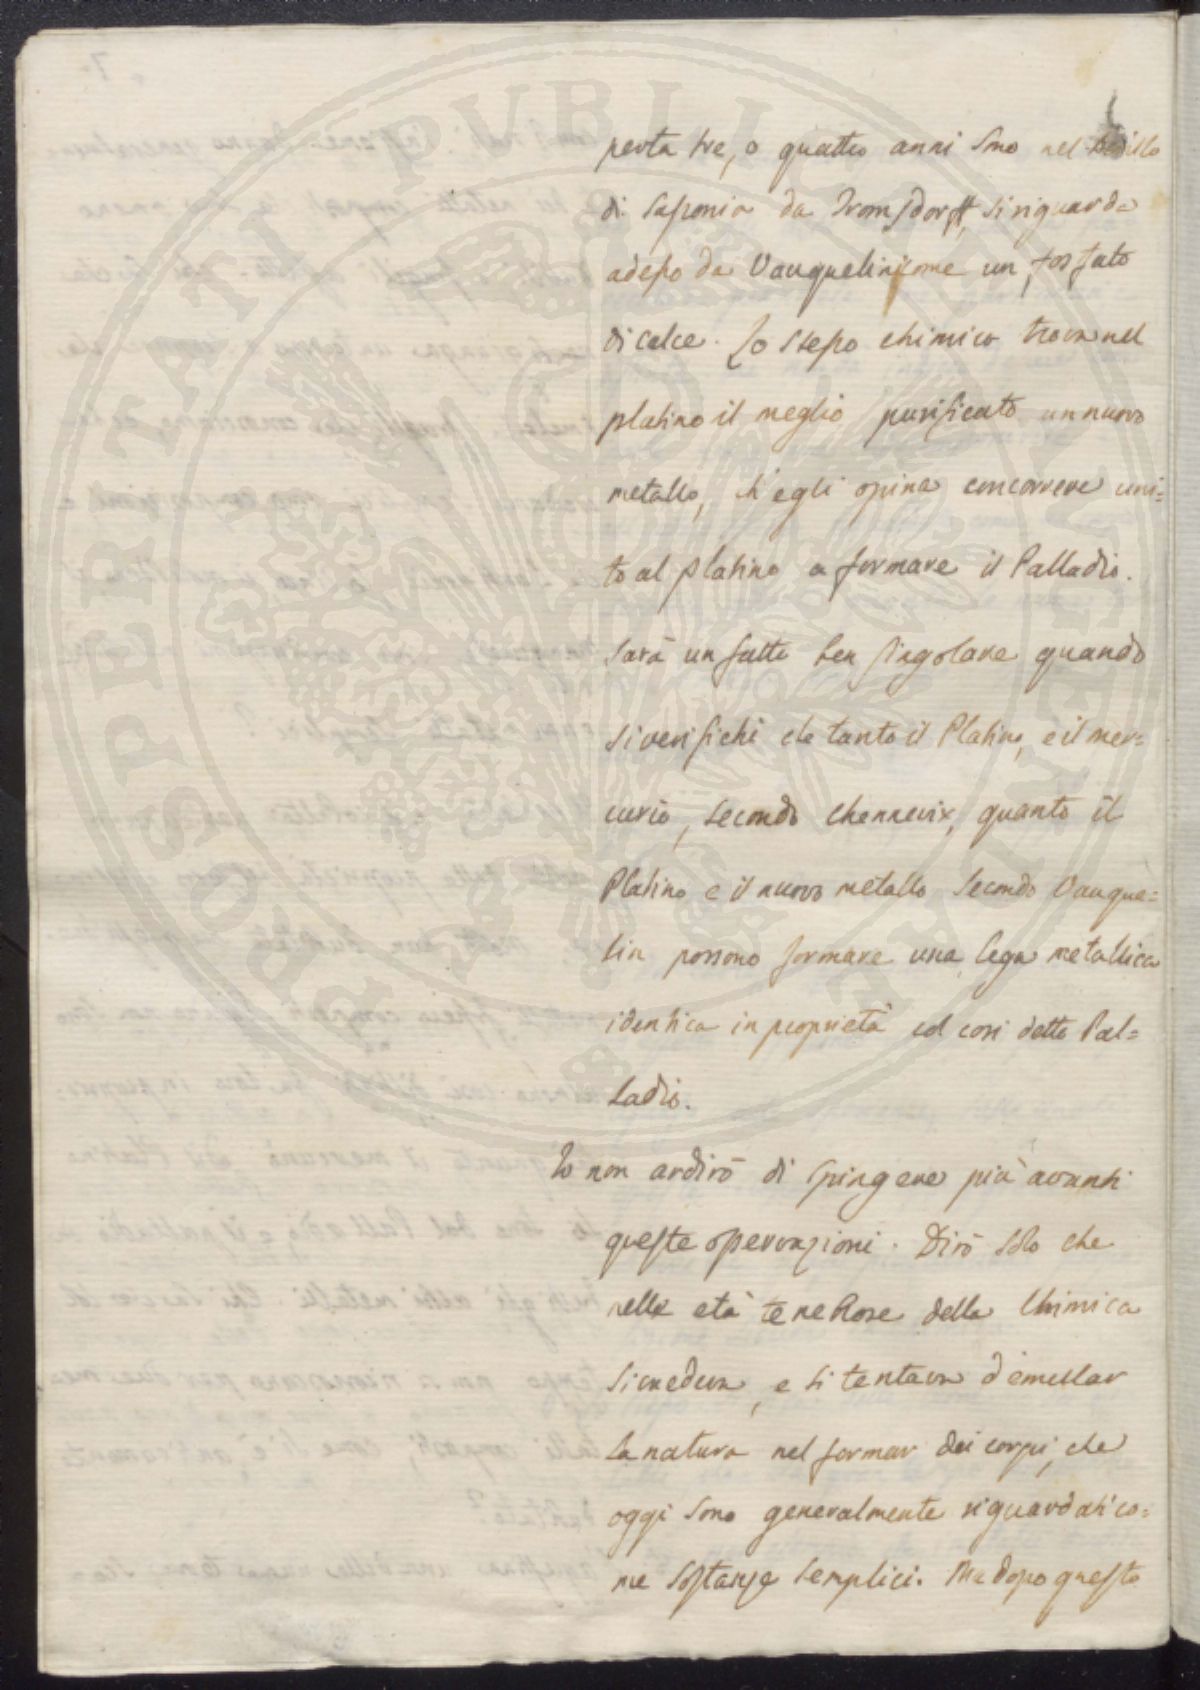 perta tre, o quattro anni sono nel Berillo
di Saſsonia da Tromſdorff, si riguarda
adeſso da Vauquelin come un fosfato
di calce. Lo steſso chimico trova nel
platino il meglio purificato un nuovo
metallo, ch'egli opina concorrere uni=
to al platino a formare il Palladio.
Sarà un fatto ben ſingolare quando
si verifichi che tanto il Platino, e il mer=
curio, secondo Chenevix, quanto il
Platino e il nuovo metallo secondo Vauque=
lin possono formare una lega metallica
identica in proprietà col così detto Pal=
ladio.
Io non ardirò di spingere più avanti
queſte oſservazioni. Dirò solo che
nelle età tenebrose della Chimica
si credeva, e si tentava d'emular
la natura nel formar dei corpi, che
oggi sono generalmente riguardati co=
me soſtanze semplici. Ma dopo queſto
PROSPERITATI PUBLICAE AUGENDAE